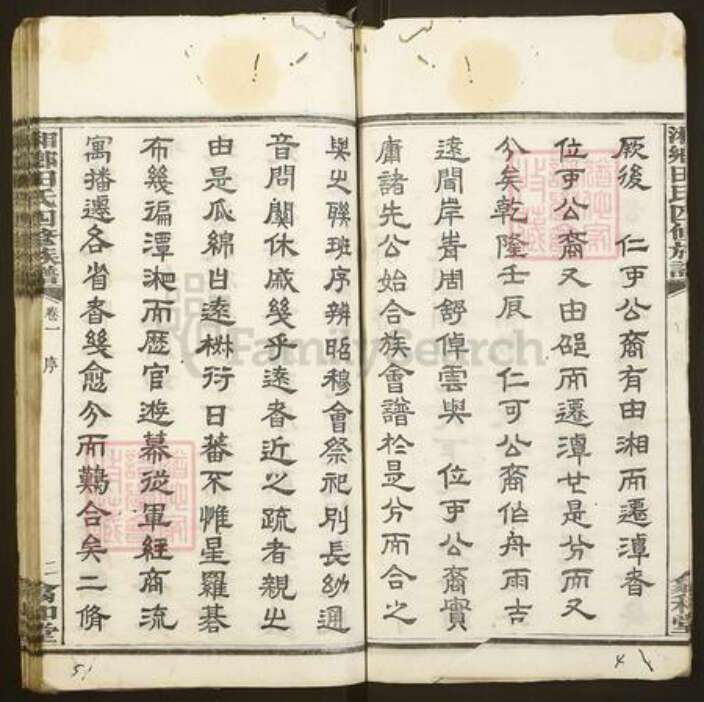 湘鄉田氏四修族譜
厥後 仁可公裔有由湘而遷漳者
位可公裔又由邵而遷漳於是分而又
分矣乾隆壬辰 仁可公裔作舟雨吉
遠聞岸青周舒倬雲與 位可公裔實
庸諸先公始合族會譜於是分而合之
與之聯班序辨昭穆會祭祀別長幼通
音問關休戚幾乎遠者近之疏者親之
由是瓜綿日遠椒衍日蕃不惟星羅碁
布幾徧潭湘而歷官遊幕從軍經商流
寓播遷各省者幾愈分而難合矣二脩
湘鄉田氏四修族譜
卷一 序
二
FamilySearch
4
51